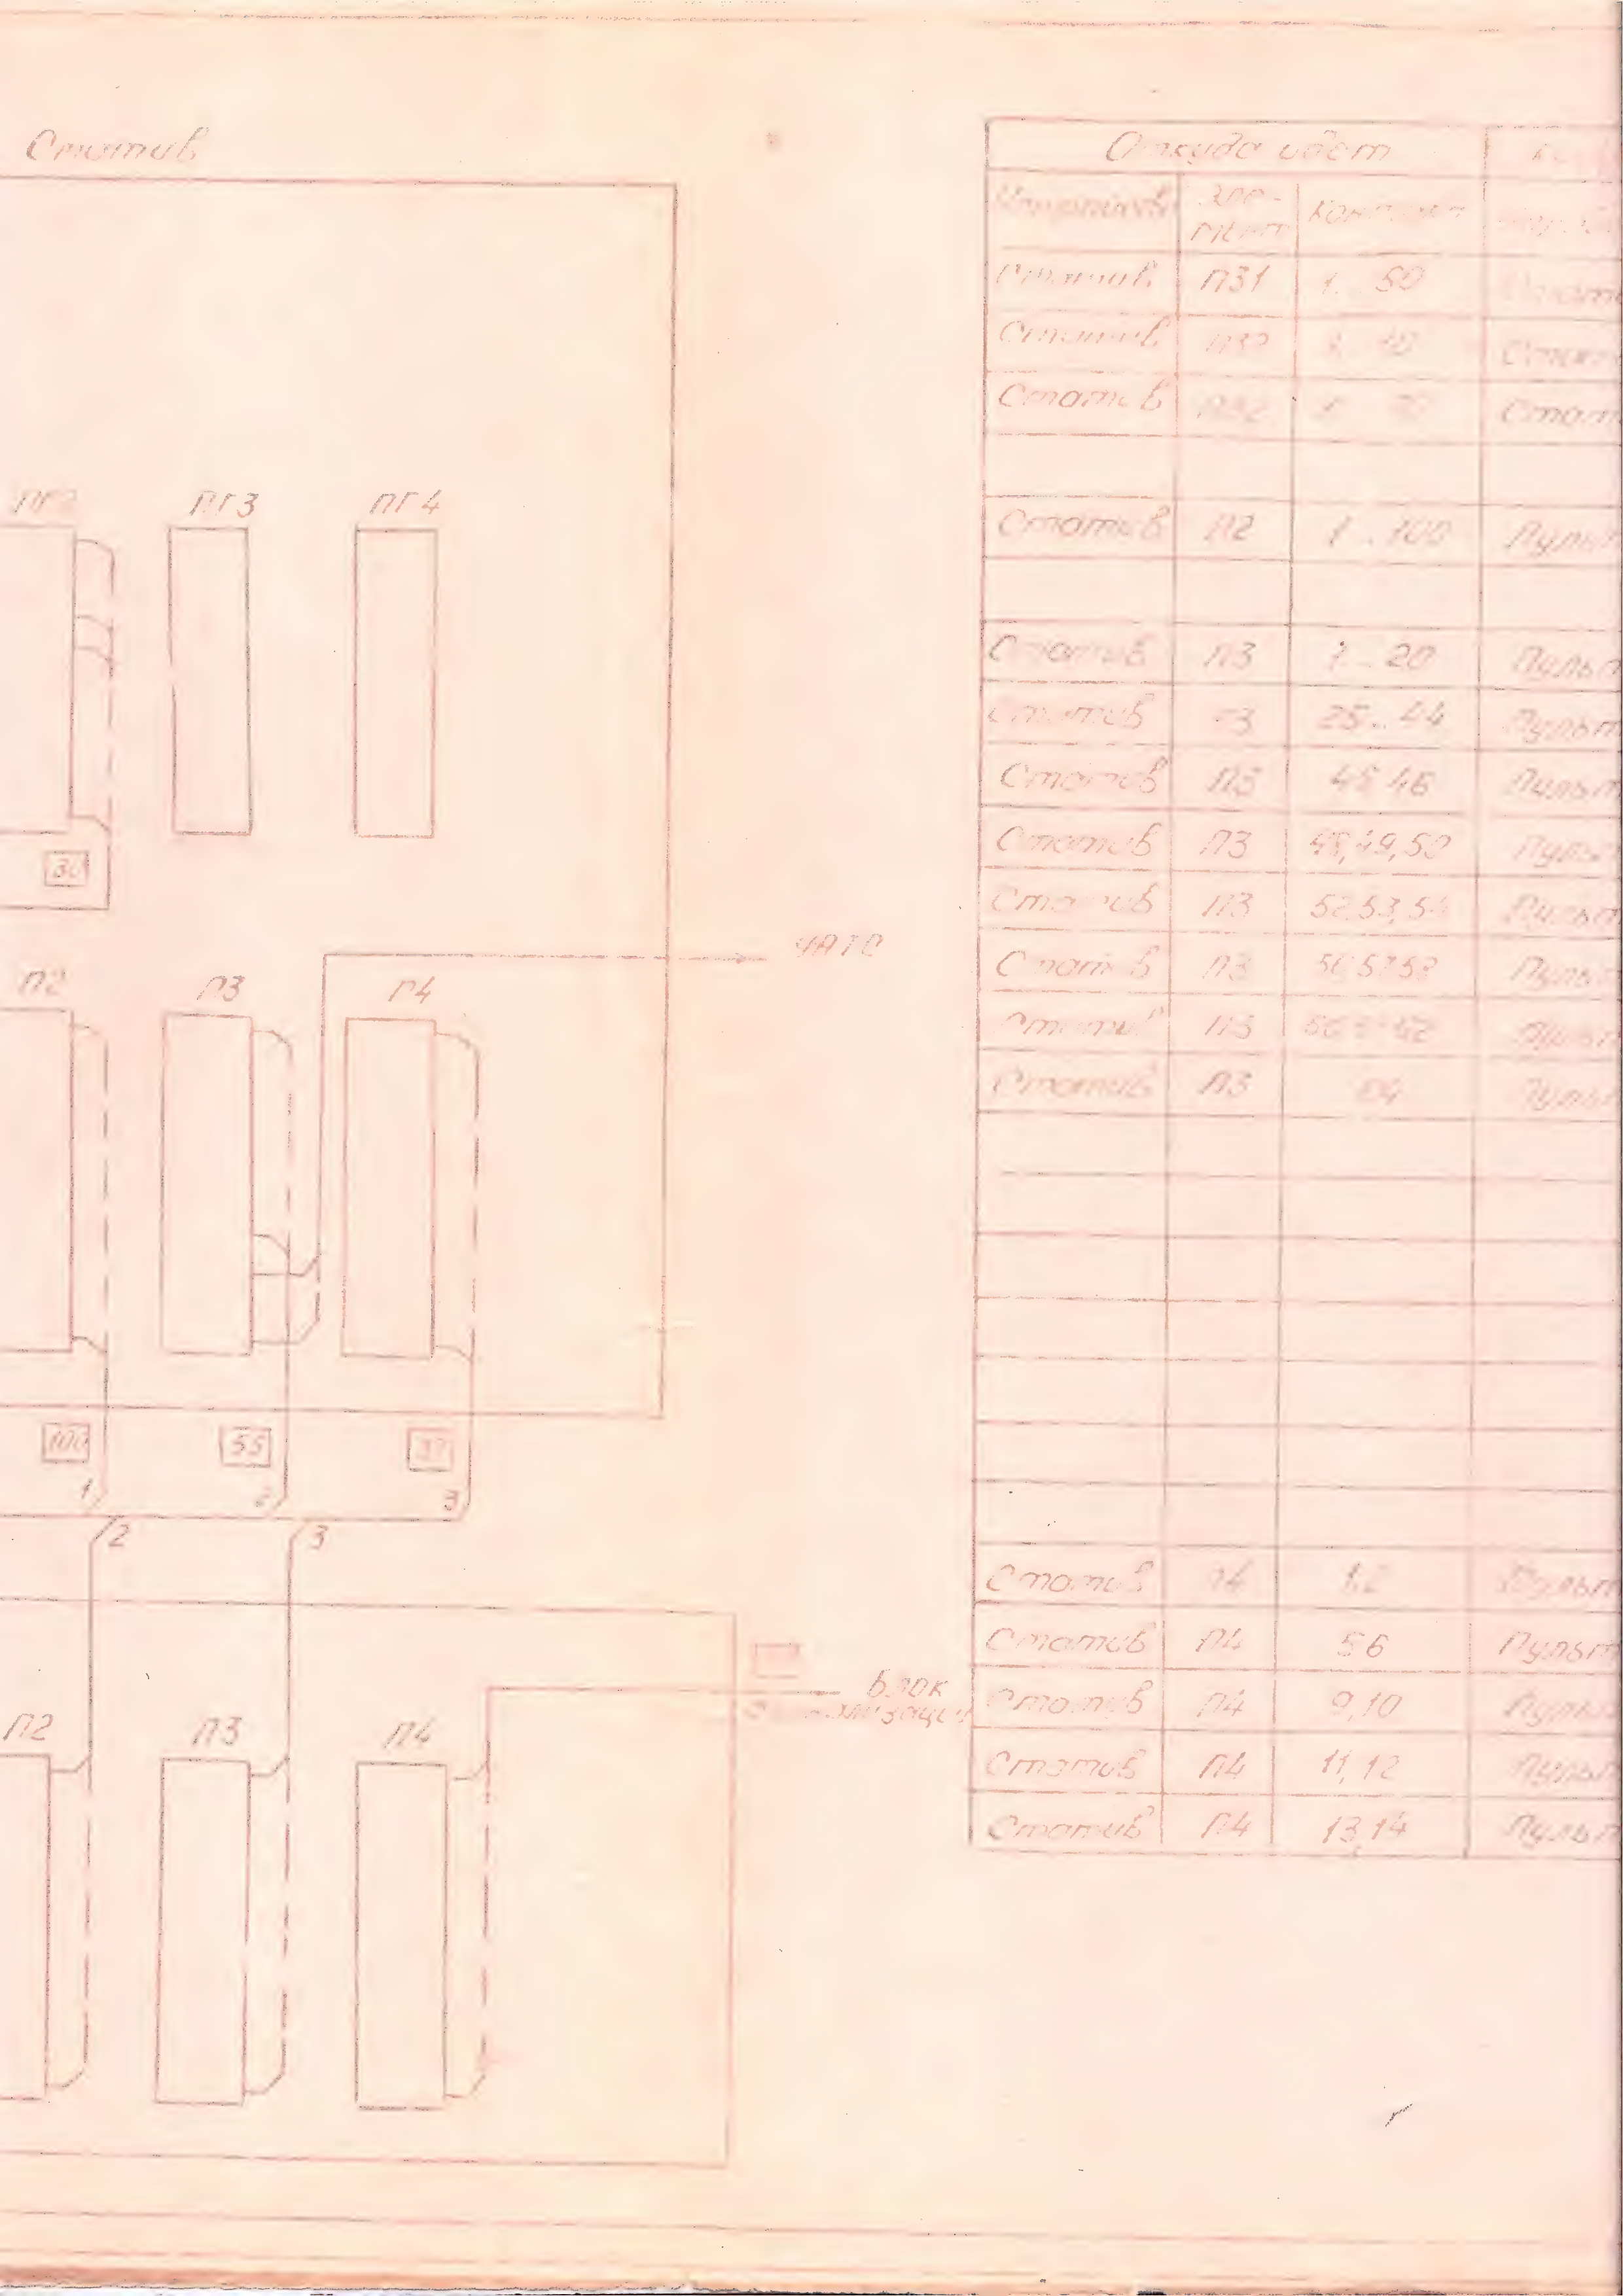 Статив
ПГ2 ПГ3 ПГ4
30
УАТС
П2 П3 П4
100 55 37
1 2 3
2 3
Блок
П2 П3 П4
Откуда идет
Эле- Контакт
мент
Статив ПЗ1 1...50
Статив
Статив Стат
Статив П2 1...100 Пульт
Статив П3 1...20 Пульт
Статив П3 25...44 Пульт
Статив П3 45,46 Пульт
Статив П3 48,49,50 Пульт
Статив П3 52,53,54 Пульт
Статив П3 56,57,58 Пульт
Статив П3 Пульт
Статив П3 64 Пульт
Статив П4 1,2 Пульт
Статив П4 5,6 Пульт
Статив П4 9,10 Пульт
Статив П4 11,12 Пульт
Статив П4 13,14 Пульт